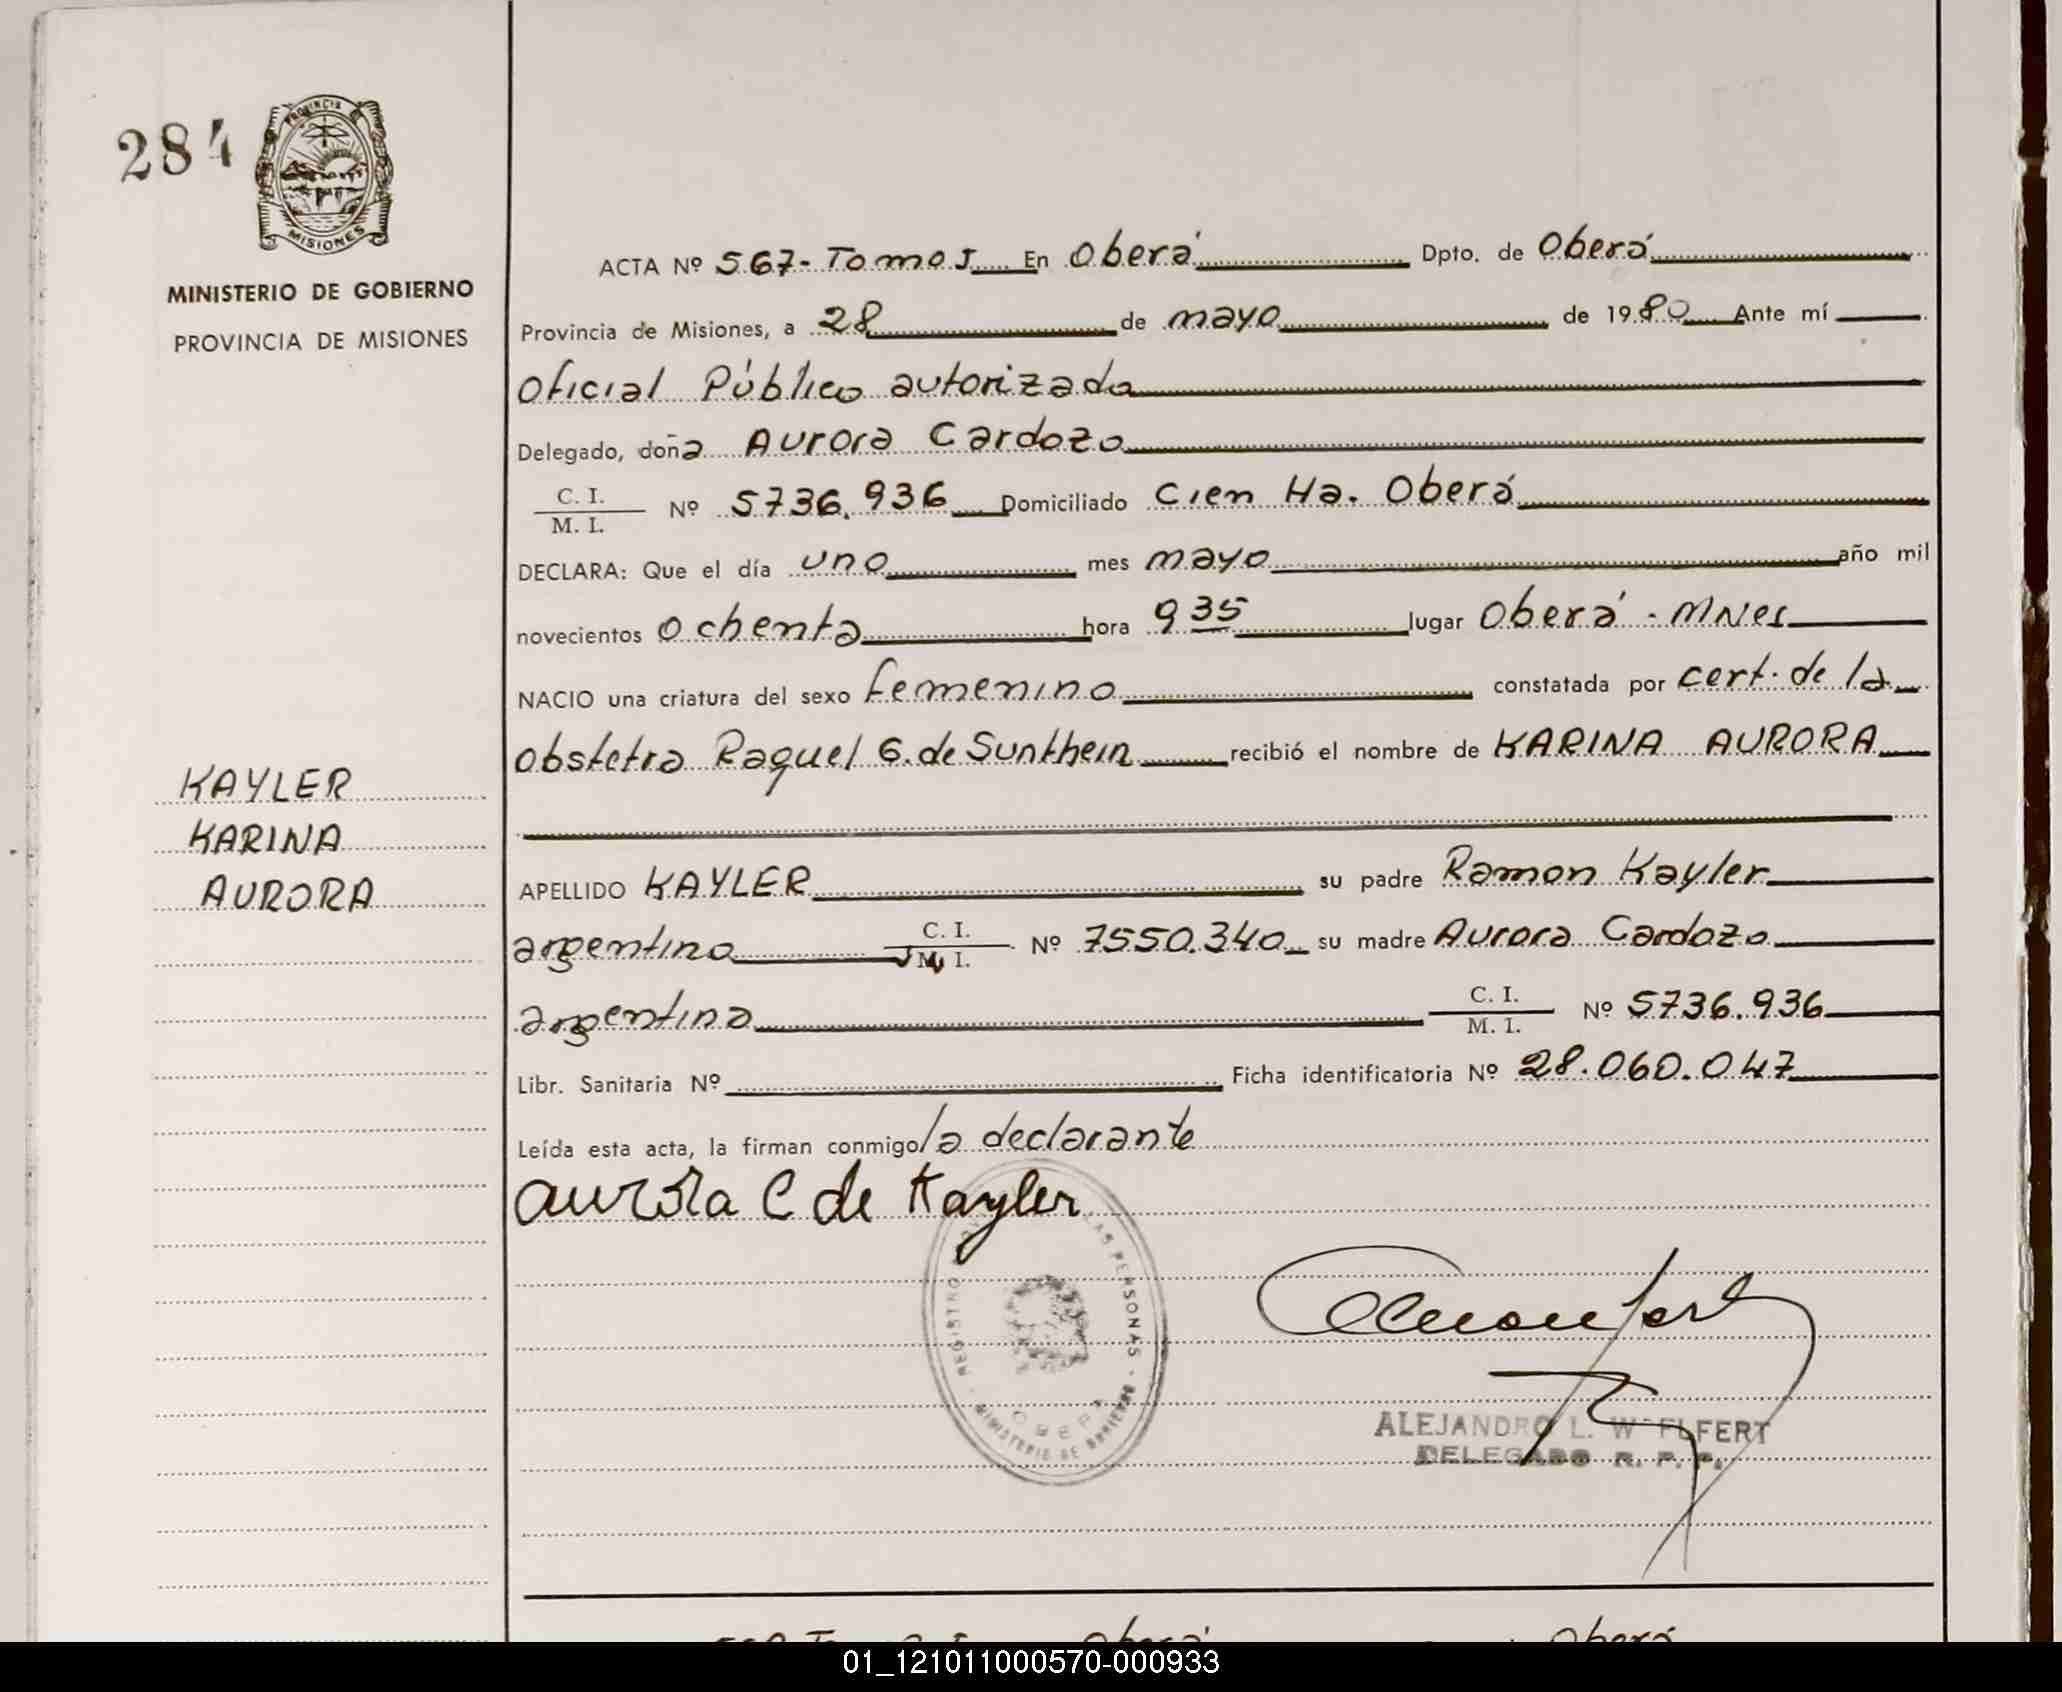 284
PROVINCIA
MISIONES
MINISTERIO DE GOBIERNO
PROVINCIA DE MISIONES
KAYLER
KARINA
AURORA
ACTA Nº 567-Tomo I En Oberá Dpto. de Oberá
Provincia de Misiones, a 28 de mayo de 1980 Ante mí
Oficial Público autorizado
Delegado, doña Aurora Cardozo
C. I.
M. I. Nº 5736.936 Domiciliado Cien Ha. Oberá
DECLARA: Que el día uno mes mayo año mil
novecientos ochenta hora 9 35 lugar Oberá - MNes
NACIO una criatura del sexo femenino constatada por cert. de la
Obstetra Raquel G. de Sunthein recibió el nombre de KARINA AURORA
APELLIDO KAYLER su padre Ramon Kayler
argentino C. I. M. I. Nº 7550.340 su madre Aurora Cardozo
argentina C. I. M. I. Nº 5736.936
Libr. Sanitaria Nº Ficha identificatoria Nº 28.060.047
Leída esta acta, la firman conmigo la declarante
aurora C de Kayler
REGISTRO LAS PERSONAS - MINISTERIO DE GOBIERNO
OBERA
ALEJANDRO L. W FLFERT
DELEGADO R. P. P.
Oberá Oberá
01_121011000570-000933